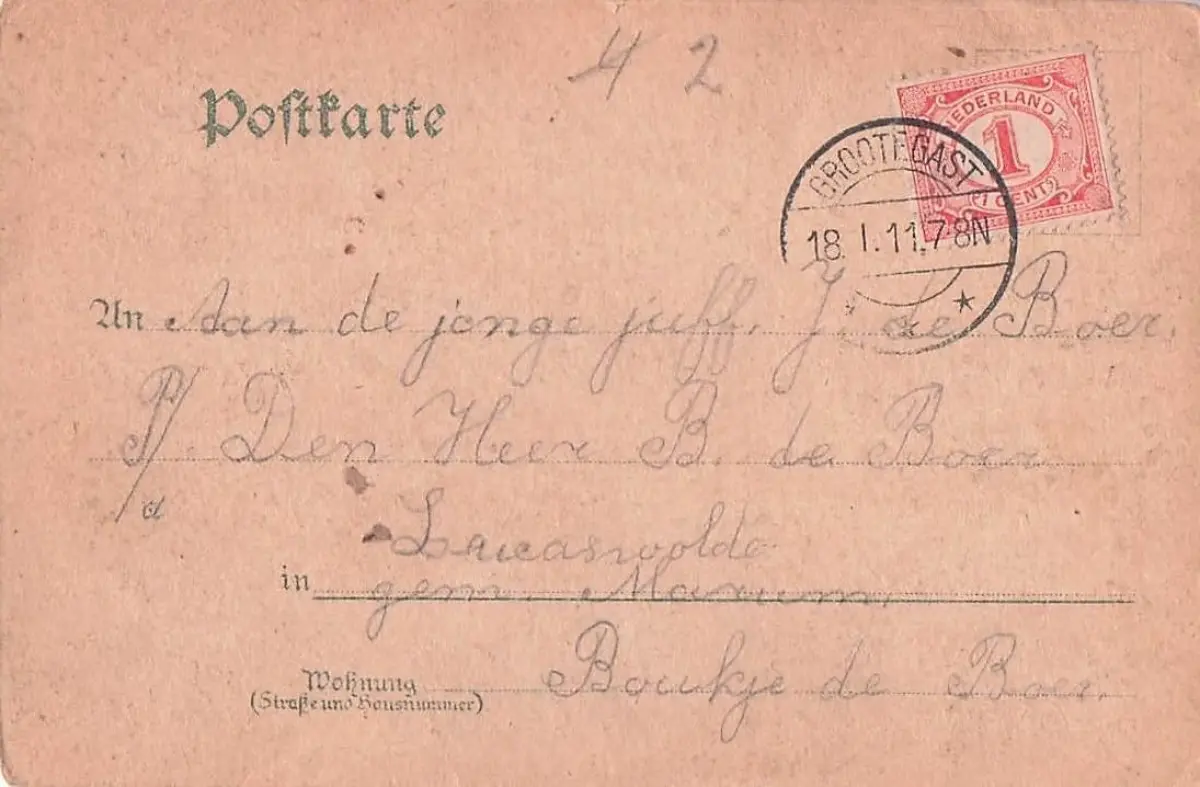 42
Postkarte
NEDERLAND
1
1 CENT
GROOTEGAST
18. 1. 11. 7-8N
An Aan de jonge juff. J. de Boer.
P/ Den Heer B. de Boer
d
Lucaswolde
in gem. Marum.
Wohnung Boukje de Boer.
(Straße und Hausnummer)